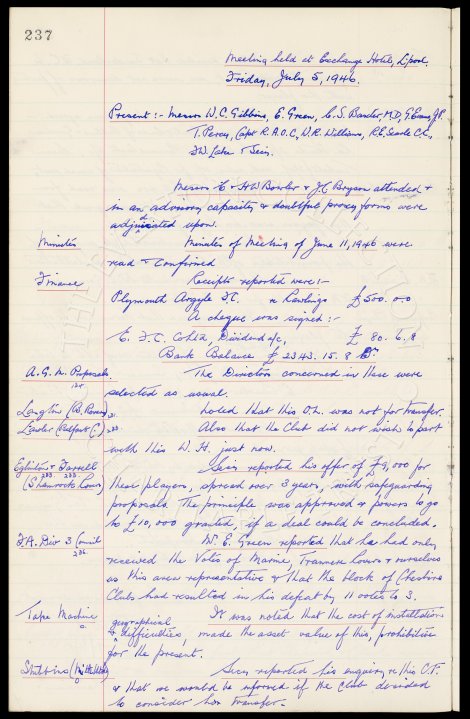 237
Meeting held at Exchange Hotel, L'pool.
Friday, July 5, 1946.
Present:- Messrs W.C. Gibbins, E. Green, C.S. Baxter M.D, G. Evans J.P.
T. Percy, Capt R.A.O.C, W.R. Williams, R.E. Searle C.C.,
& Secy.
Messrs E & HW Bowler & J.C. Bryson attended &
in an advisory capacity & doubtful proxy forms were
adjudicated upon.
Minutes
Minutes of Meeting of June 11, 1946 were
read & confirmed
Finance
Receipts reported were:-
Plymouth Argyle F.C. re Rawlings £500. 0. 0
A cheque was signed:-
E. F.C. Co Ltd, Dividend a/c, £ 80. 6. 8
Bank Balance £2343. 15. 8 Dr
A.G.M. Proposals.
The Directors concerned in these were
selected as usual.
Langton (B. Rovers)
Noted that this O.L. was not for transfer.
Lawlor (Belfast C.)
Also that the Club did not wish to part
with this W.H. just now.
Eglington & Farrell
(Shamrock Rovers)
Secy reported his offer of £9,000 for
these players, spread over 3 years, with safeguarding
proposals. The principle was approved & powers to go
to £10,000 granted, if a deal could be concluded.
F.A. Div 3 Council
Mr. E. Green reported that he had only
received the Votes of Marine, Tranmere Rovers & ourselves
as this area representative & that the block of Cheshire
Clubs had resulted in his defeat by 11 votes to 3.
Tape Machine
It was noted that the cost of installation
geographical
& difficulties, made the asset value of this, prohibitive
for the present.
Stubbins
Secy reported his enquiry re this C.F.
& that we would be informed if the Club decided
to consider his transfer.